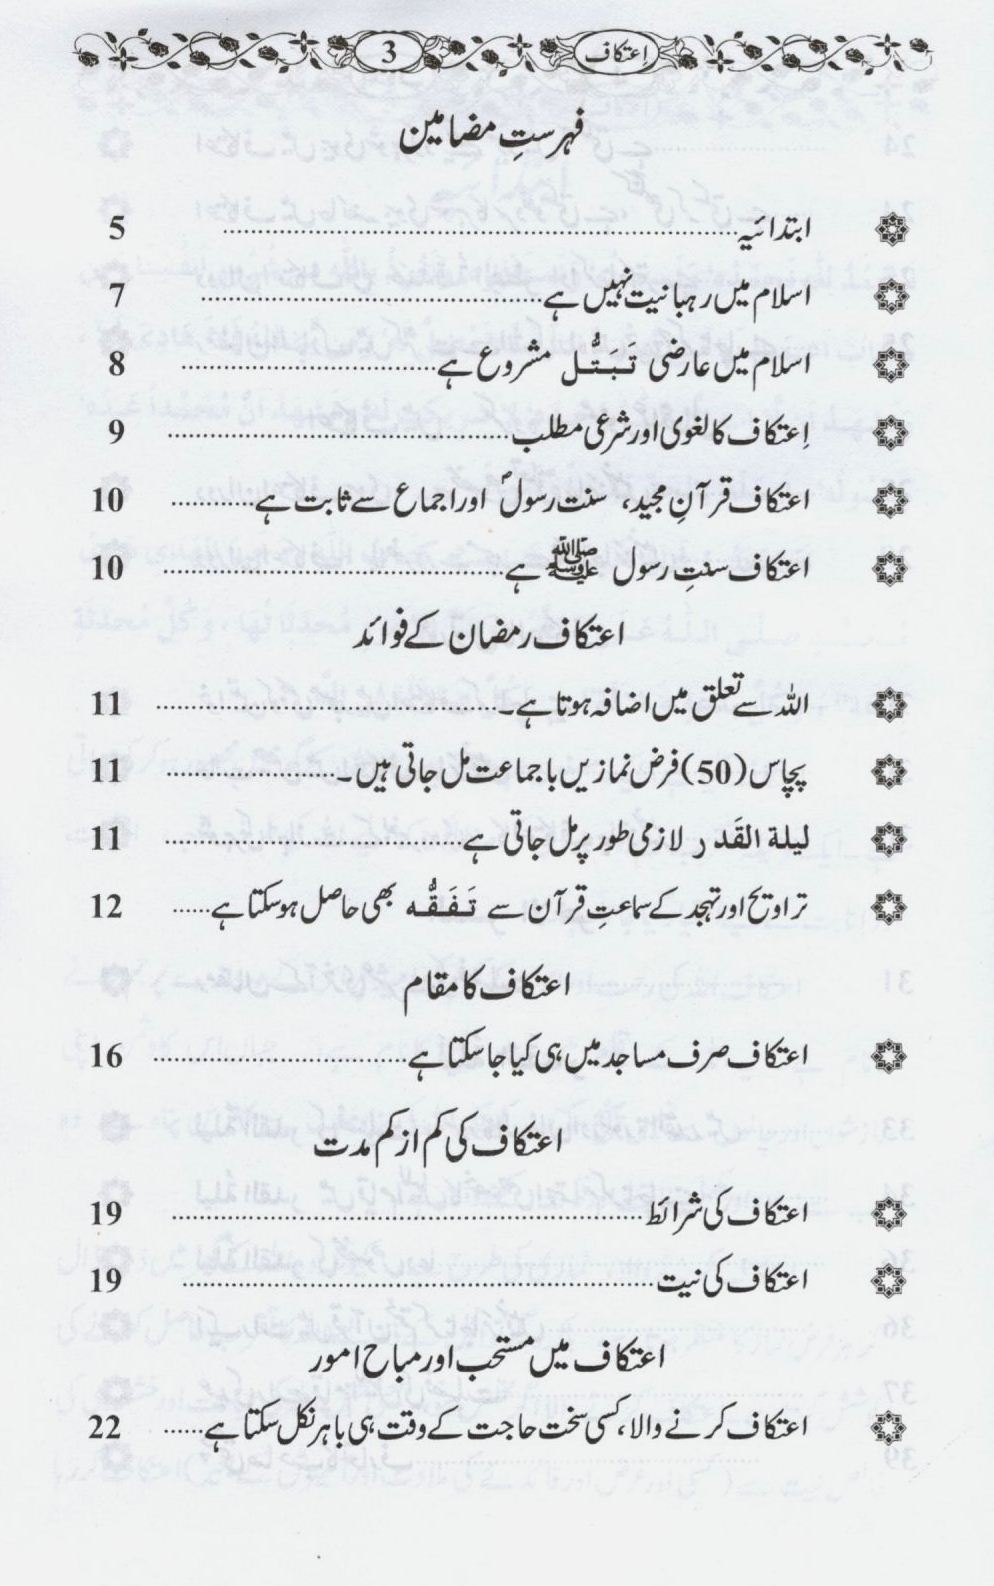 اعتکاف 3
فہرستِ مضامین
ابتدائیہ........................ 5
اسلام میں رہبانیت نہیں ہے........................ 7
اسلام میں عارضی تَبَتُّل مشروع ہے........................ 8
اِعتکاف کا لغوی اور شرعی مطلب........................ 9
اعتکاف قرآنِ مجید، سنت رسولؐ اور اجماع سے ثابت ہے............ 10
اعتکاف سنتِ رسول ﷺ ہے........................ 10
اعتکاف رمضان کے فوائد
اللہ سے تعلق میں اضافہ ہوتا ہے۔........................ 11
پچاس (50) فرض نمازیں باجماعت مل جاتی ہیں۔........................ 11
لیلة القَدر لازمی طور پر مل جاتی ہے........................ 11
تراویح اور تہجد کے سماعتِ قرآن سے تَفَقُّه بھی حاصل ہوسکتا ہے...... 12
اعتکاف کا مقام
اعتکاف صرف مساجد میں ہی کیا جا سکتا ہے........................ 16
اعتکاف کی کم از کم مدت
اعتکاف کی شرائط........................ 19
اعتکاف کی نیت........................ 19
اعتکاف میں مستحب اور مباح امور
اعتکاف کرنے والا، کسی سخت حاجت کے وقت ہی باہر نکل سکتا ہے...... 22